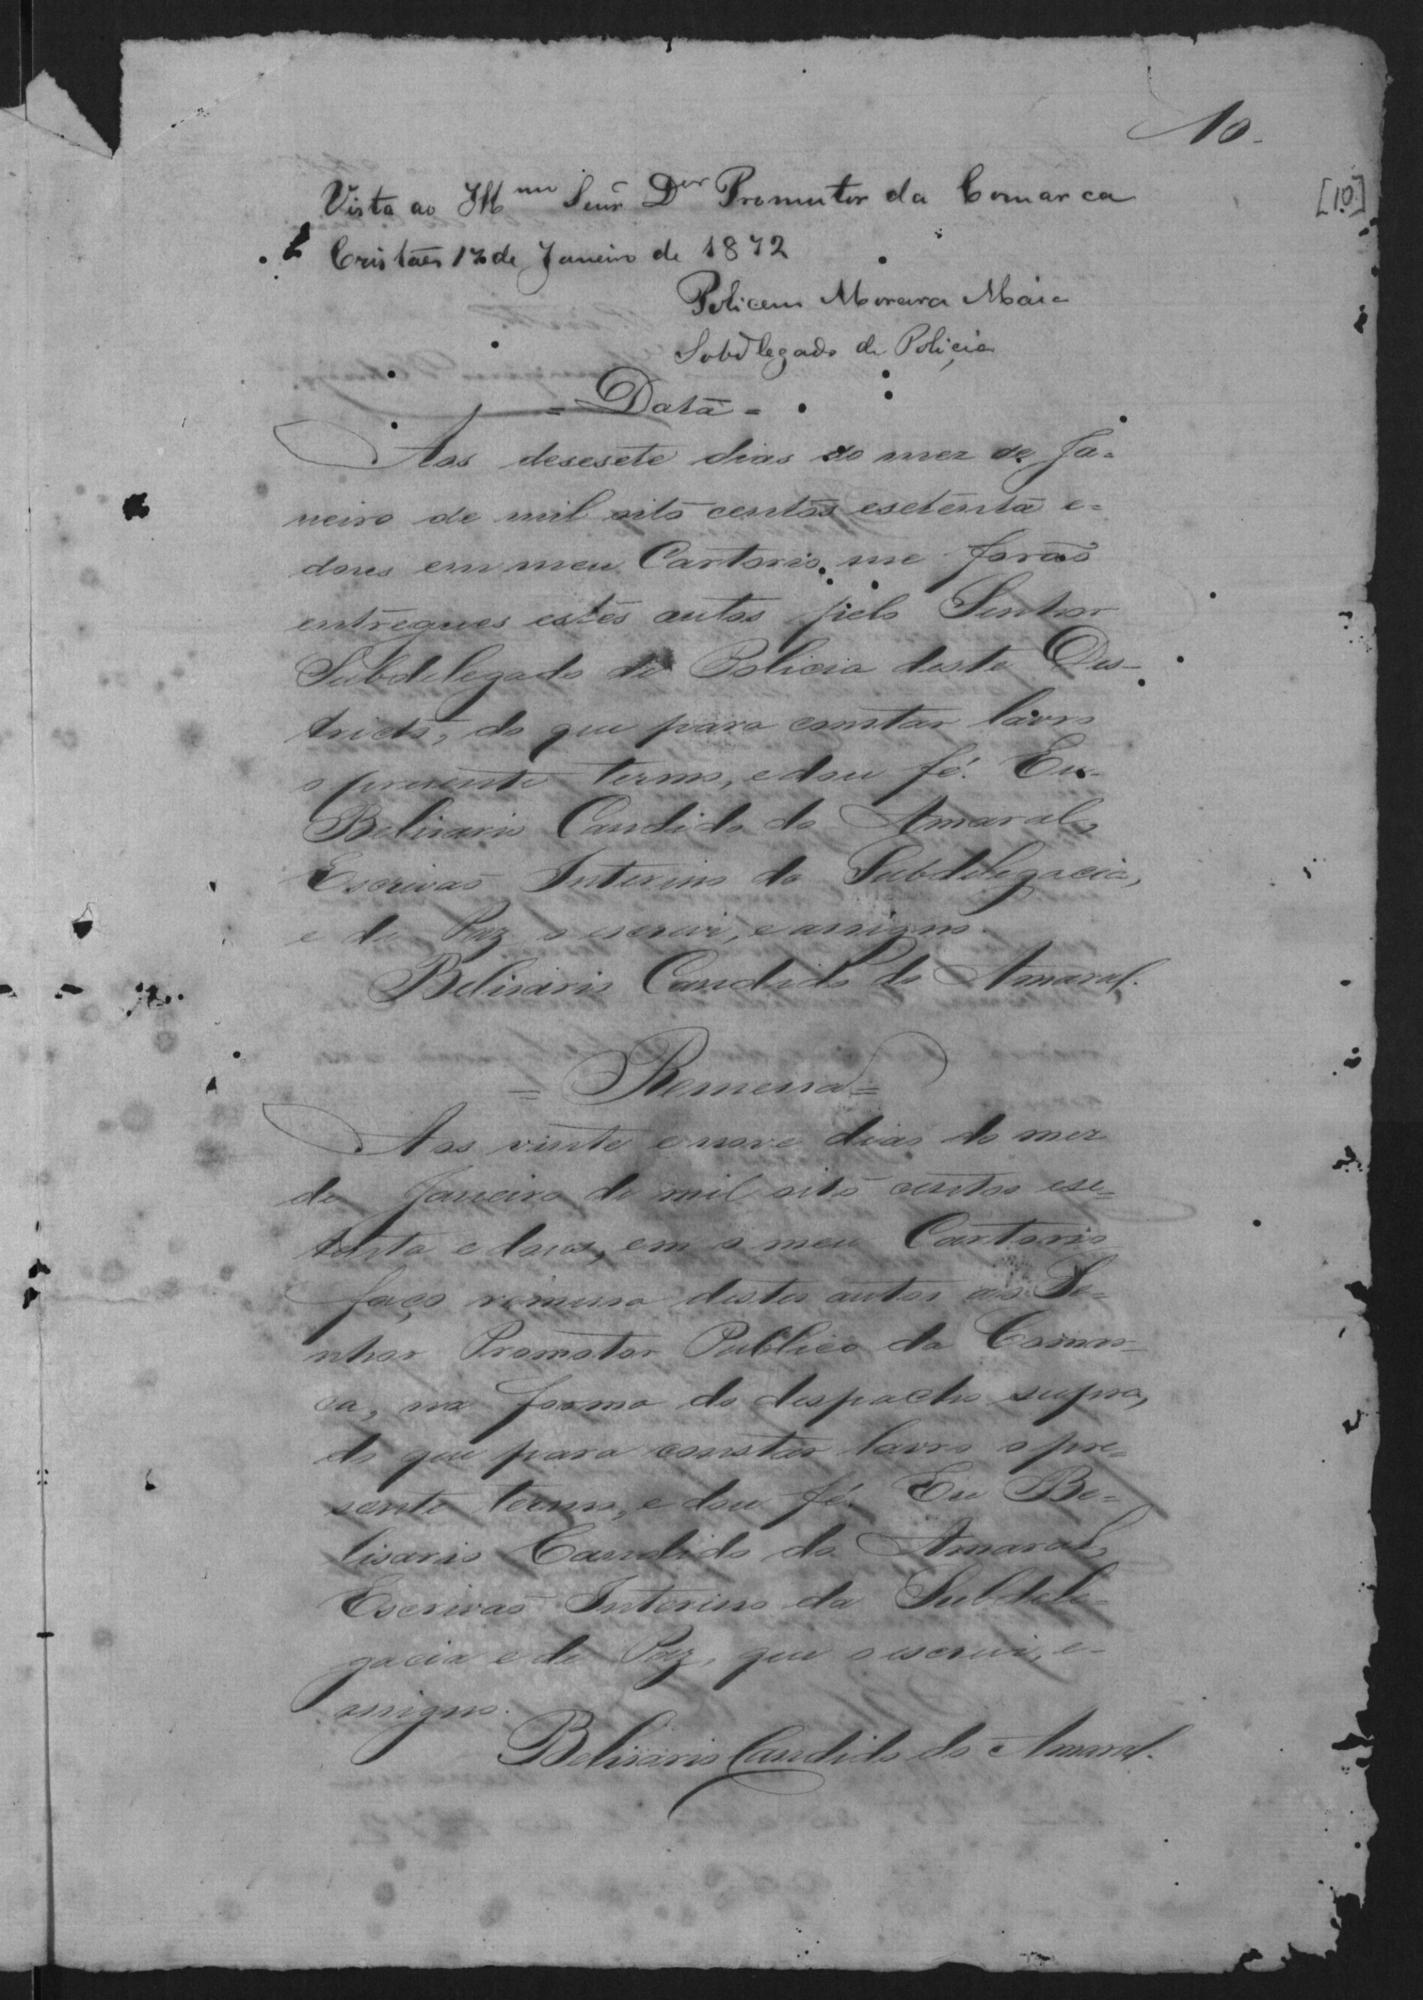 10
[10]
Vista ao Illmo Senr Dor Promutor da Comarca
Cristaes 17 de Janeiro de 1872
Moreira Maia
Subdlegado de Policia
= Data =
Aos desesete dias do mez de Ja=
neiro de mil oito centos esetenta e=
dous em meu Cartorio me forão
entregues estes autos pelo Senhor
Subdelegado de Policia deste Dis-
tricto, do que para constar lavro
o presente termo, e dou fé. Eu
Belisario Candido do Amaral,
Escrivão Interino da Subdelegacia,
e de Paz o escrevi, e assigno.
Belisario Candido do Amaral.
= Remessa =
Aos vinte e nove dias do mez
de Janeiro de mil oito centos ese=
tenta e dous, em o meu Cartorio
faço remessa destes autos ao Se=
nhor Promotor Publico da Comar-
ca, na forma do despacho supra,
do que para constar lavro o pre=
sente termo, e dou fé. Eu Be=
lisario Candido do Amaral,
Escrivão Interino da Subdele-
gacia e de Paz, que o escrevi, e-
assigno.
Belisario Candido do Amaral.